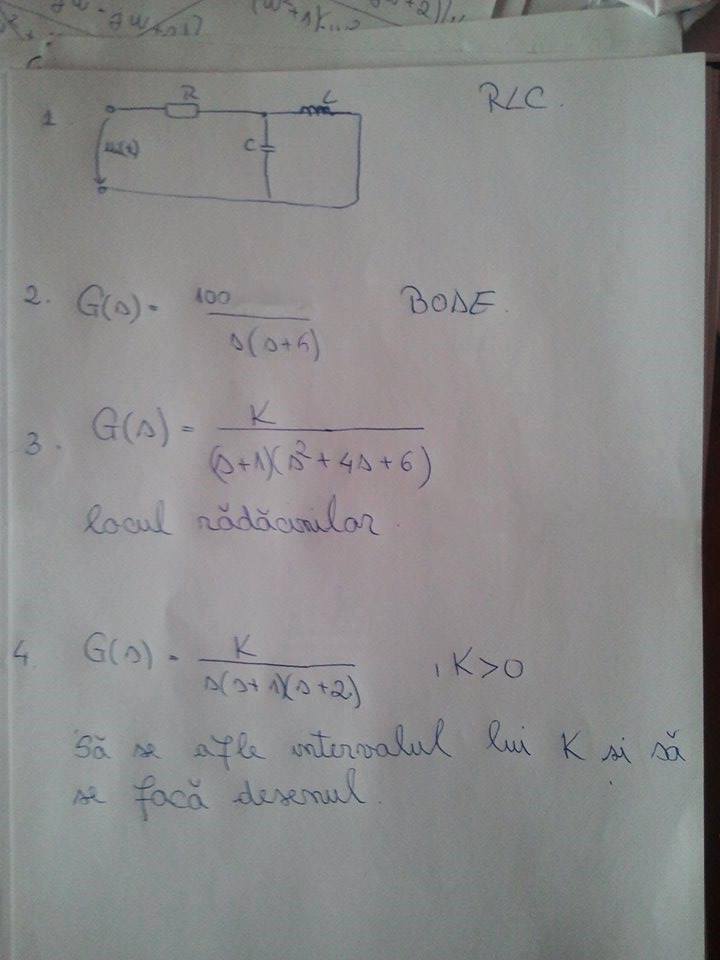 1. R L RLC.
C
2. G(s) = 100 / s(s+5) BODE.
3. G(s) = K / (s+1)(s²+4s+6)
locul rădăcinilor.
4 G(s) = K / s(s+1)(s+2) , K>0
Să se afle intervalul lui K si să
se facă desenul.